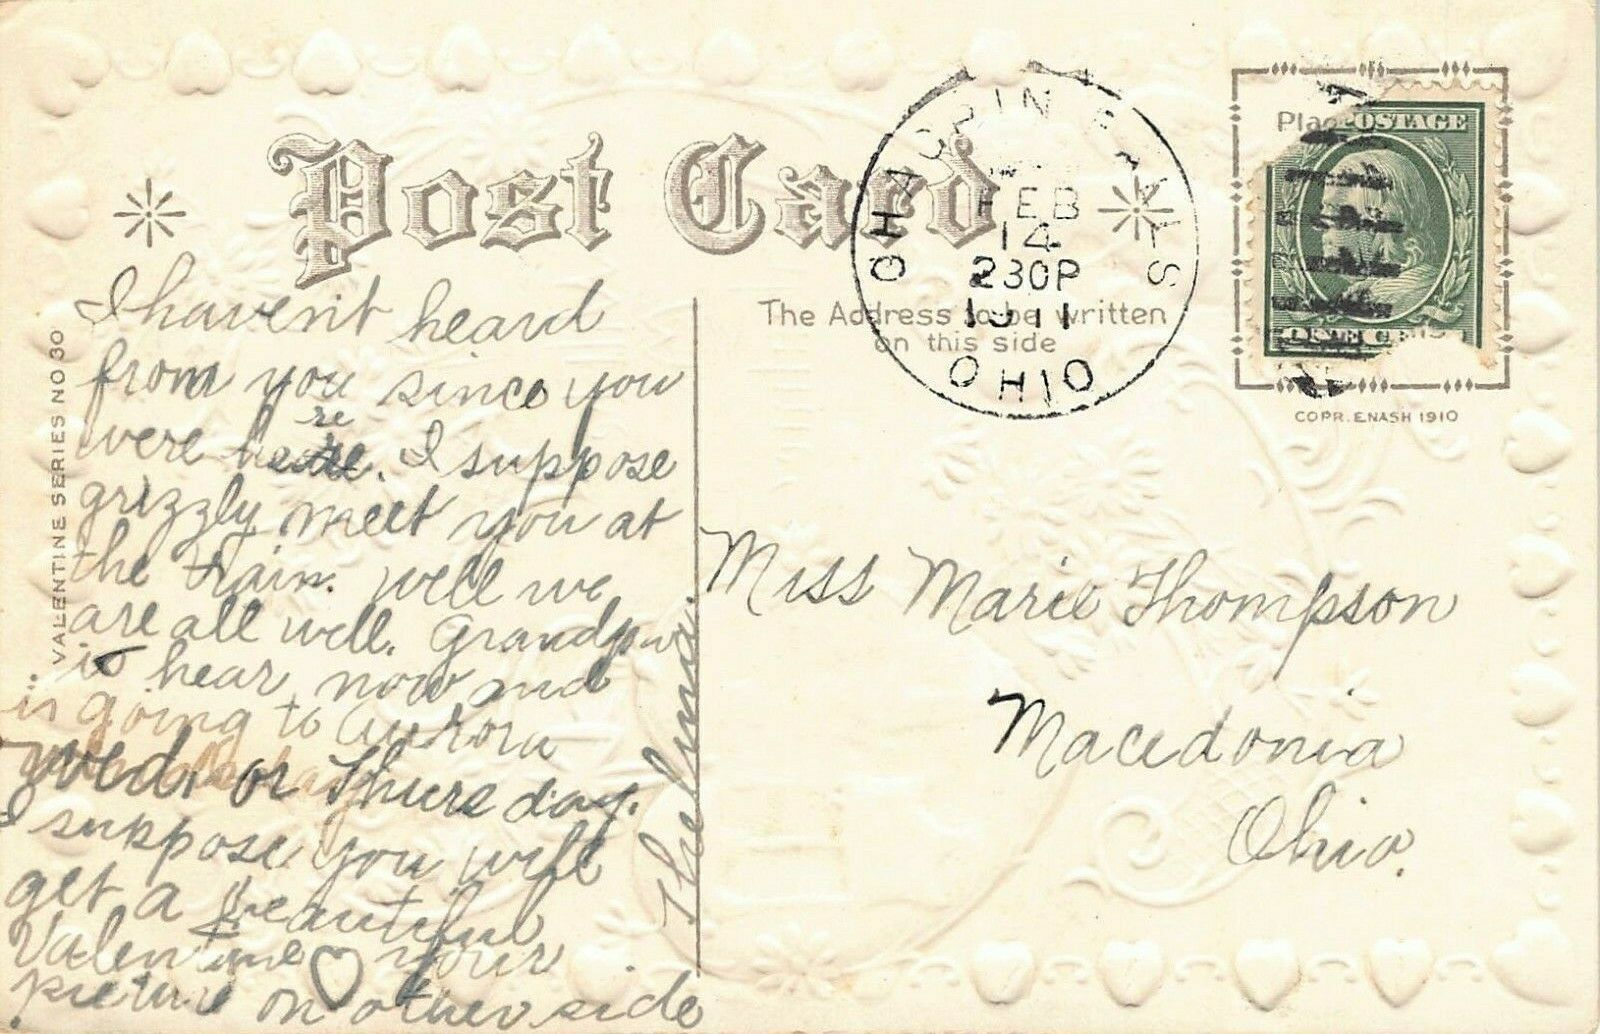 Post Card
CHAGRIN FALLS
FEB
14
230P
1911
OHIO
The Address to be written
on this side
Place
POSTAGE
ONE CENT
COPR. E.NASH 1910
VALENTINE SERIES NO 30
I haven't heard
from you since you
were here. I suppose
grizzly meet you at
the train. Well we
are all well. Grandpa
is hear now and
is going to Aurora
wed. or Thurs day.
I suppose you will
get a beautiful
Valentine ♡ your
picture on other side
Thelma.
Miss Marie Thompson
Macedonia
Ohio.